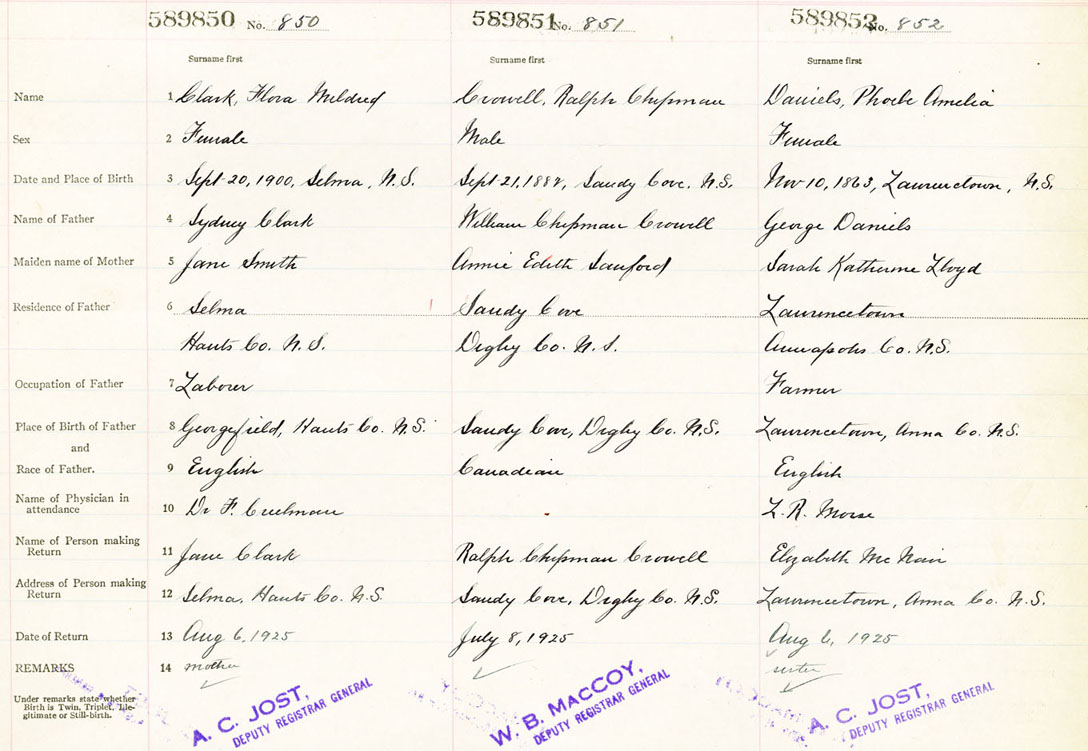 589850 No. 850 589851 No. 851 589852 No. 852
Surname first Surname first Surname first
Name 1 Clark, Flora Mildred Crowell, Ralph Chipman Daniels, Phoebe Amelia
Sex 2 Female Male Female
Date and Place of Birth 3 Sept 20, 1900, Selma, N.S. Sept 21, 1888, Sandy Cove, N.S. Nov 10, 1863, Lawrencetown, N.S.
Name of Father 4 Sydney Clark William Chipman Crowell George Daniels
Maiden name of Mother 5 Jane Smith Annie Edith Sanford Sarah Katherine Lloyd
Residence of Father 6 Selma Sandy Cove Lawrencetown
Hants Co. N.S. Digby Co. N.S. Annapolis Co. N.S.
Occupation of Father 7 Laborer Farmer
Place of Birth of Father 8 Georgefield, Hants Co. N.S. Sandy Cove, Digby Co. N.S. Lawrencetown, Anna Co. N.S.
and
Race of Father. 9 English Canadian English
Name of Physician in
attendance 10 Dr F. Creelman - L. R. Morse
Name of Person making
Return 11 Jane Clark Ralph Chipman Crowell Elizabeth McNair
Address of Person making
Return 12 Selma, Hants Co. N.S. Sandy Cove, Digby Co. N.S. Lawrencetown, Anna Co. N.S.
Date of Return 13 Aug 6, 1925 July 8, 1925 Aug 6, 1925
REMARKS 14 mother sister
Under remarks state whether
Birth is Twin, Triplet, Ille-
gitimate or Still-birth.
A. C. JOST, W. B. MacCOY, A. C. JOST,
DEPUTY REGISTRAR GENERAL DEPUTY REGISTRAR GENERAL DEPUTY REGISTRAR GENERAL